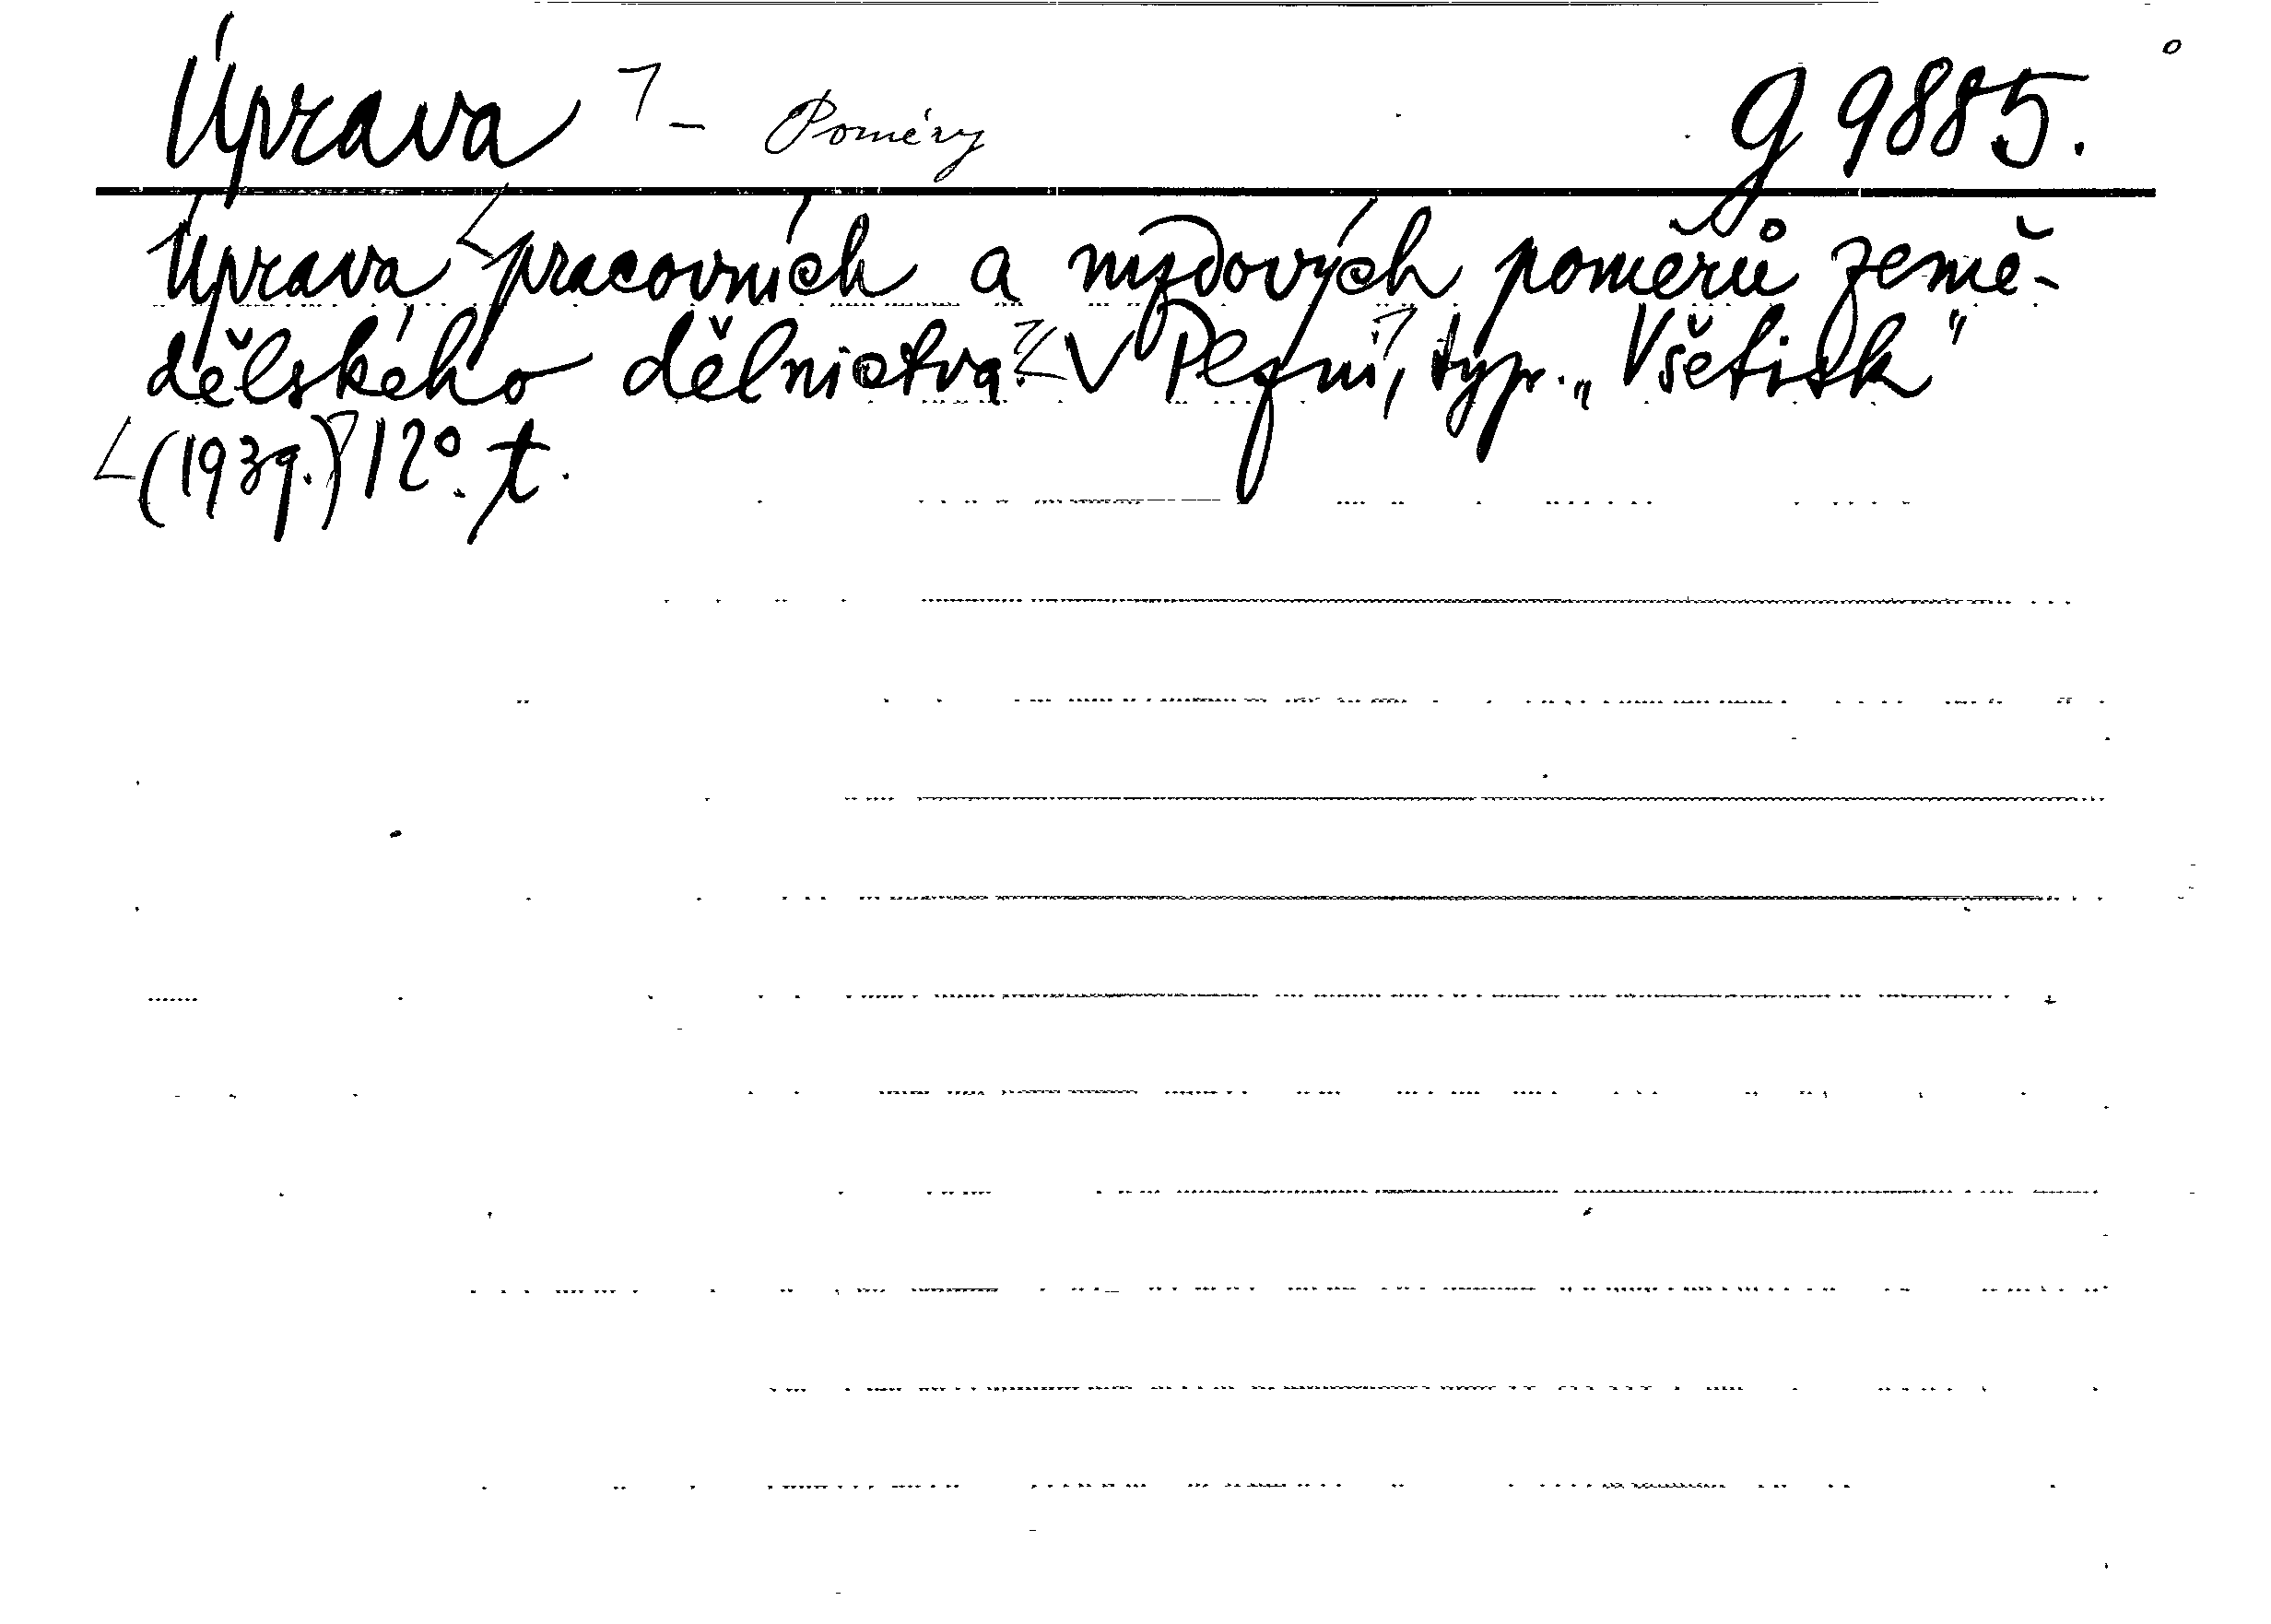 Úprava - Poměry g 9885.
Úprava pracovních a mzdových poměrů země-
dělského dělnictva. V Plzni, typ. „Všetisk"
(1939.) 12°. t.